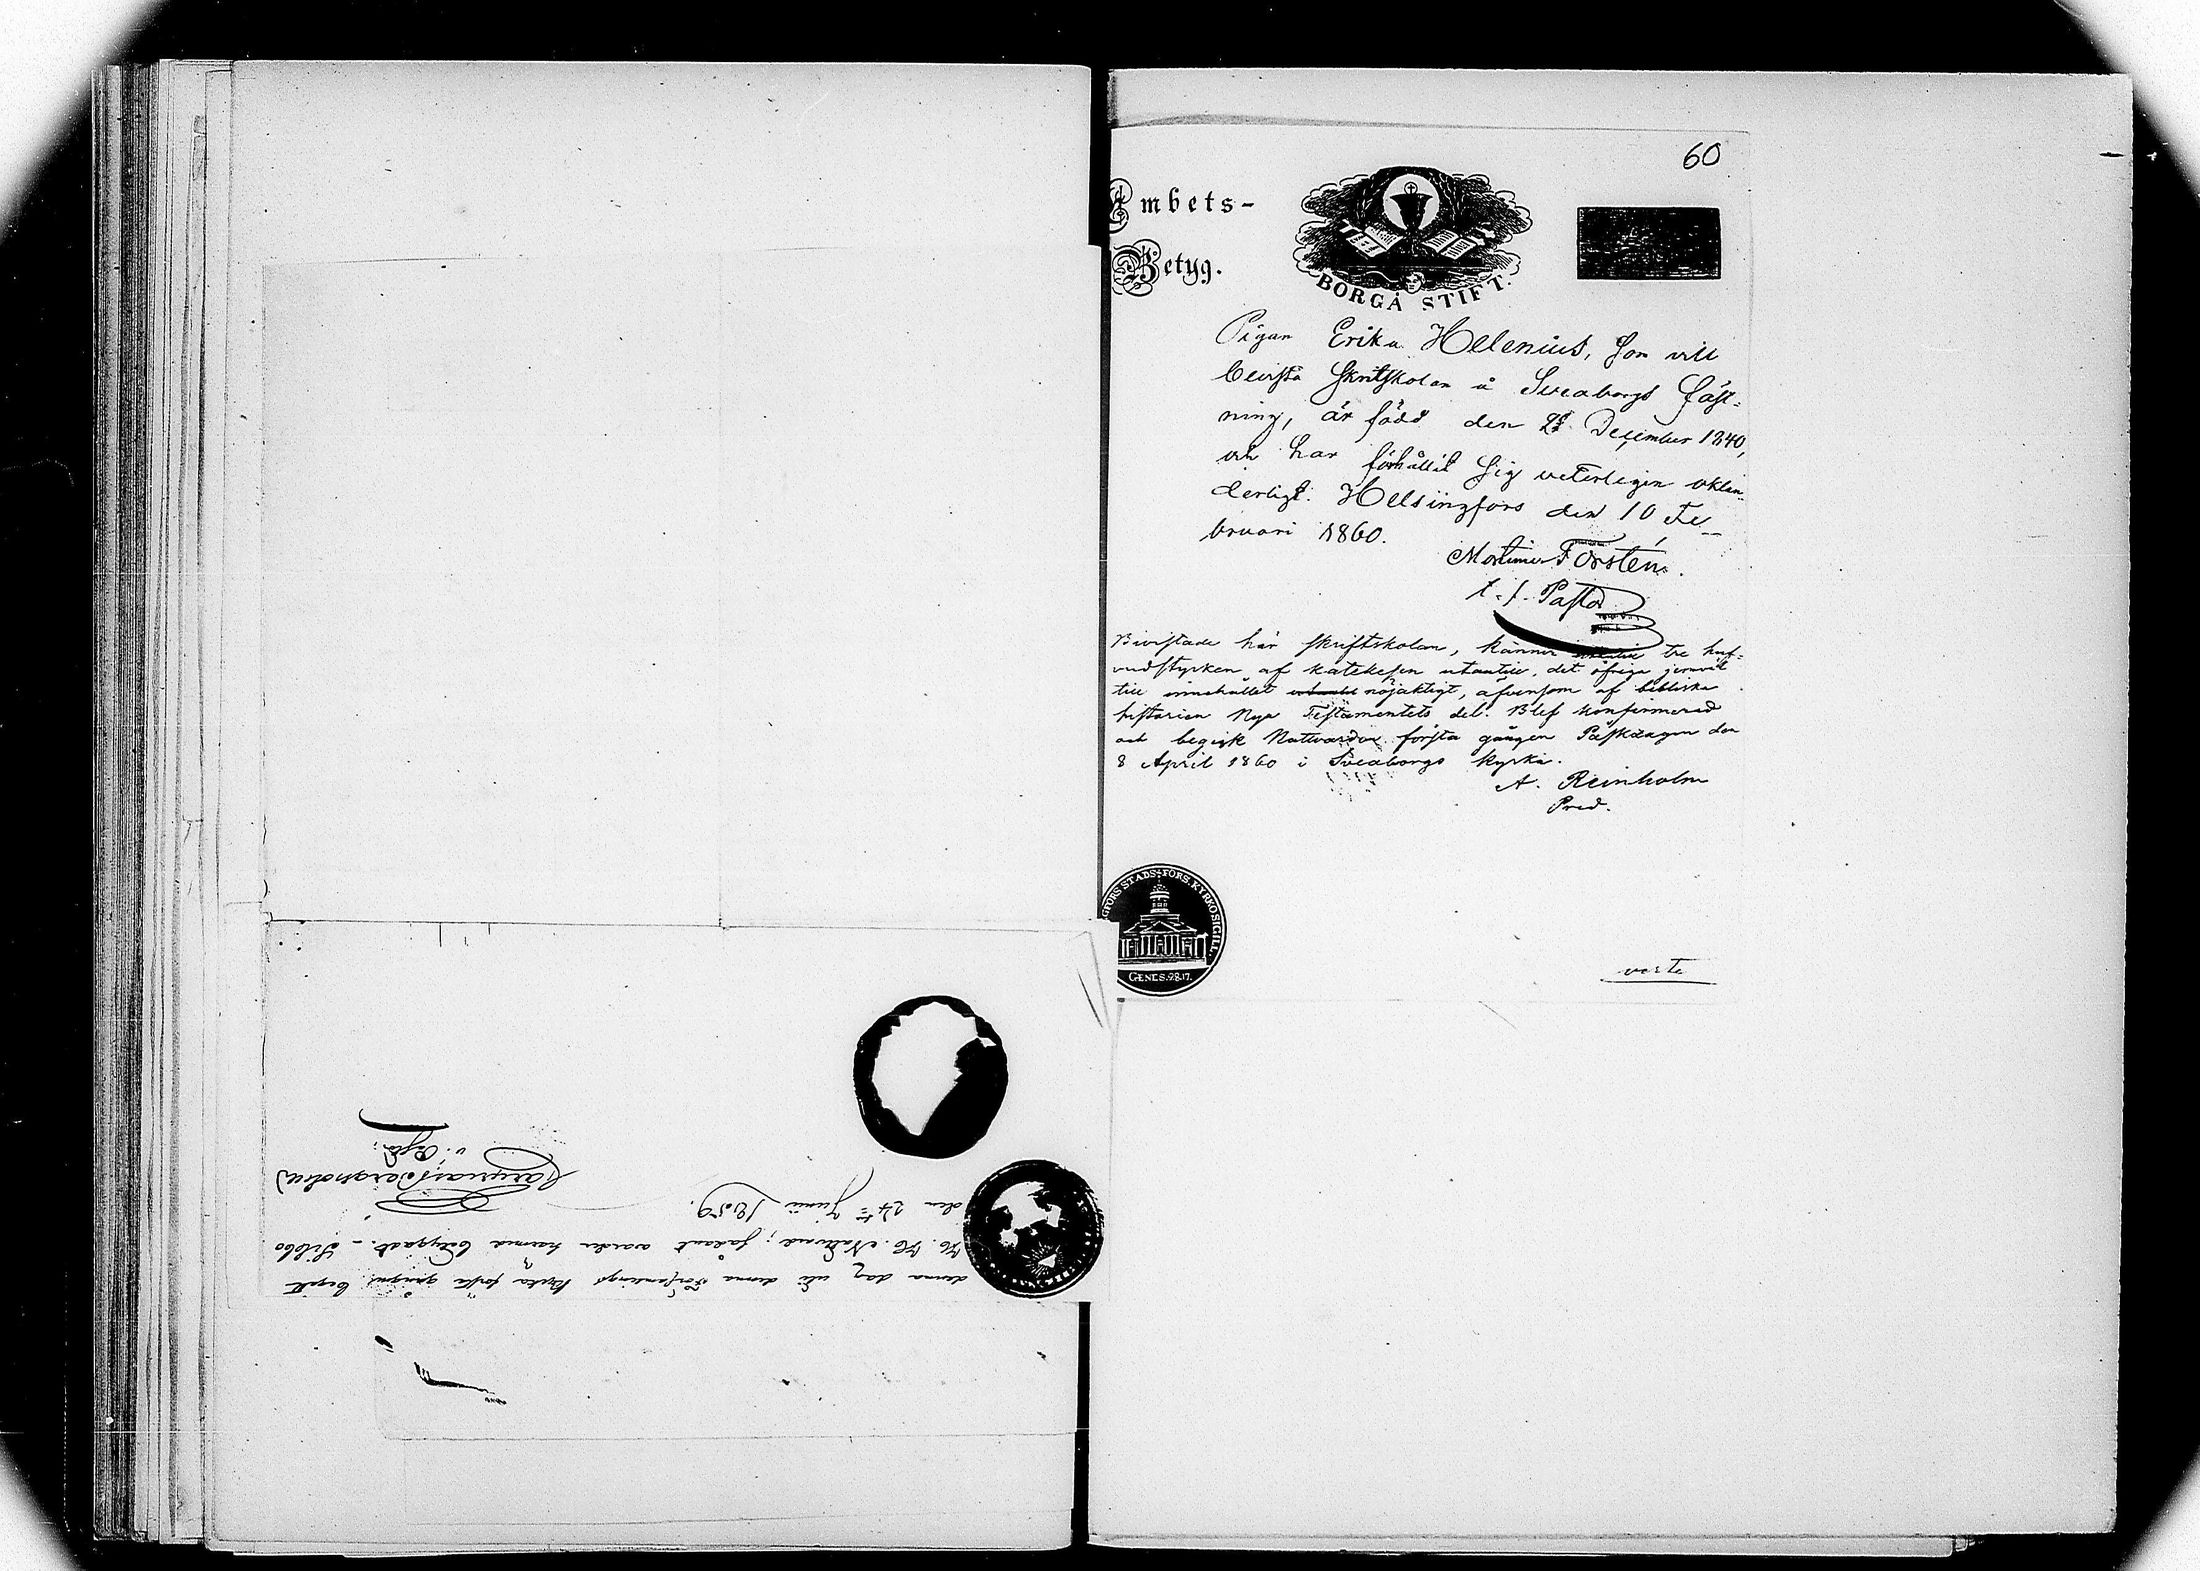 60
Ambets-
Betyg.
BORGÅ STIFT.
Pigan Erika Helenius, som vill
bevista skriftskolan å Sveaborgs fäst-
ning, är född den December 1840,
och har förhållit sig veterligen oklan-
derligt. Helsingfors den 10 Fe-
bruari 1860.
Mortimer Forstén.
t. f. Pastor
Bivistade här skriftskolan, känner tre huf-
vudstycken af katekesen utantill, det öfriga jemväl
till innehållet nöjaktigt, äfvensom af bibliska
historien Nya Testamentets del. Blef konfirmerad
och begick Nattvarden första gången Påskdagen den
8 April 1860 i Sveaborgs kyrka.
A. Reinholm
Pred.
GFORS STADS FÖRS. KYRKOSIGILL.
GENES. 28.17.
verte
denna dag uti denna Församlings kyrka första gången begått
H. H. Nattvard; sådant varder härmed betygadt. - Sibbo
den 24de Junii 1859.
v. Pastor.